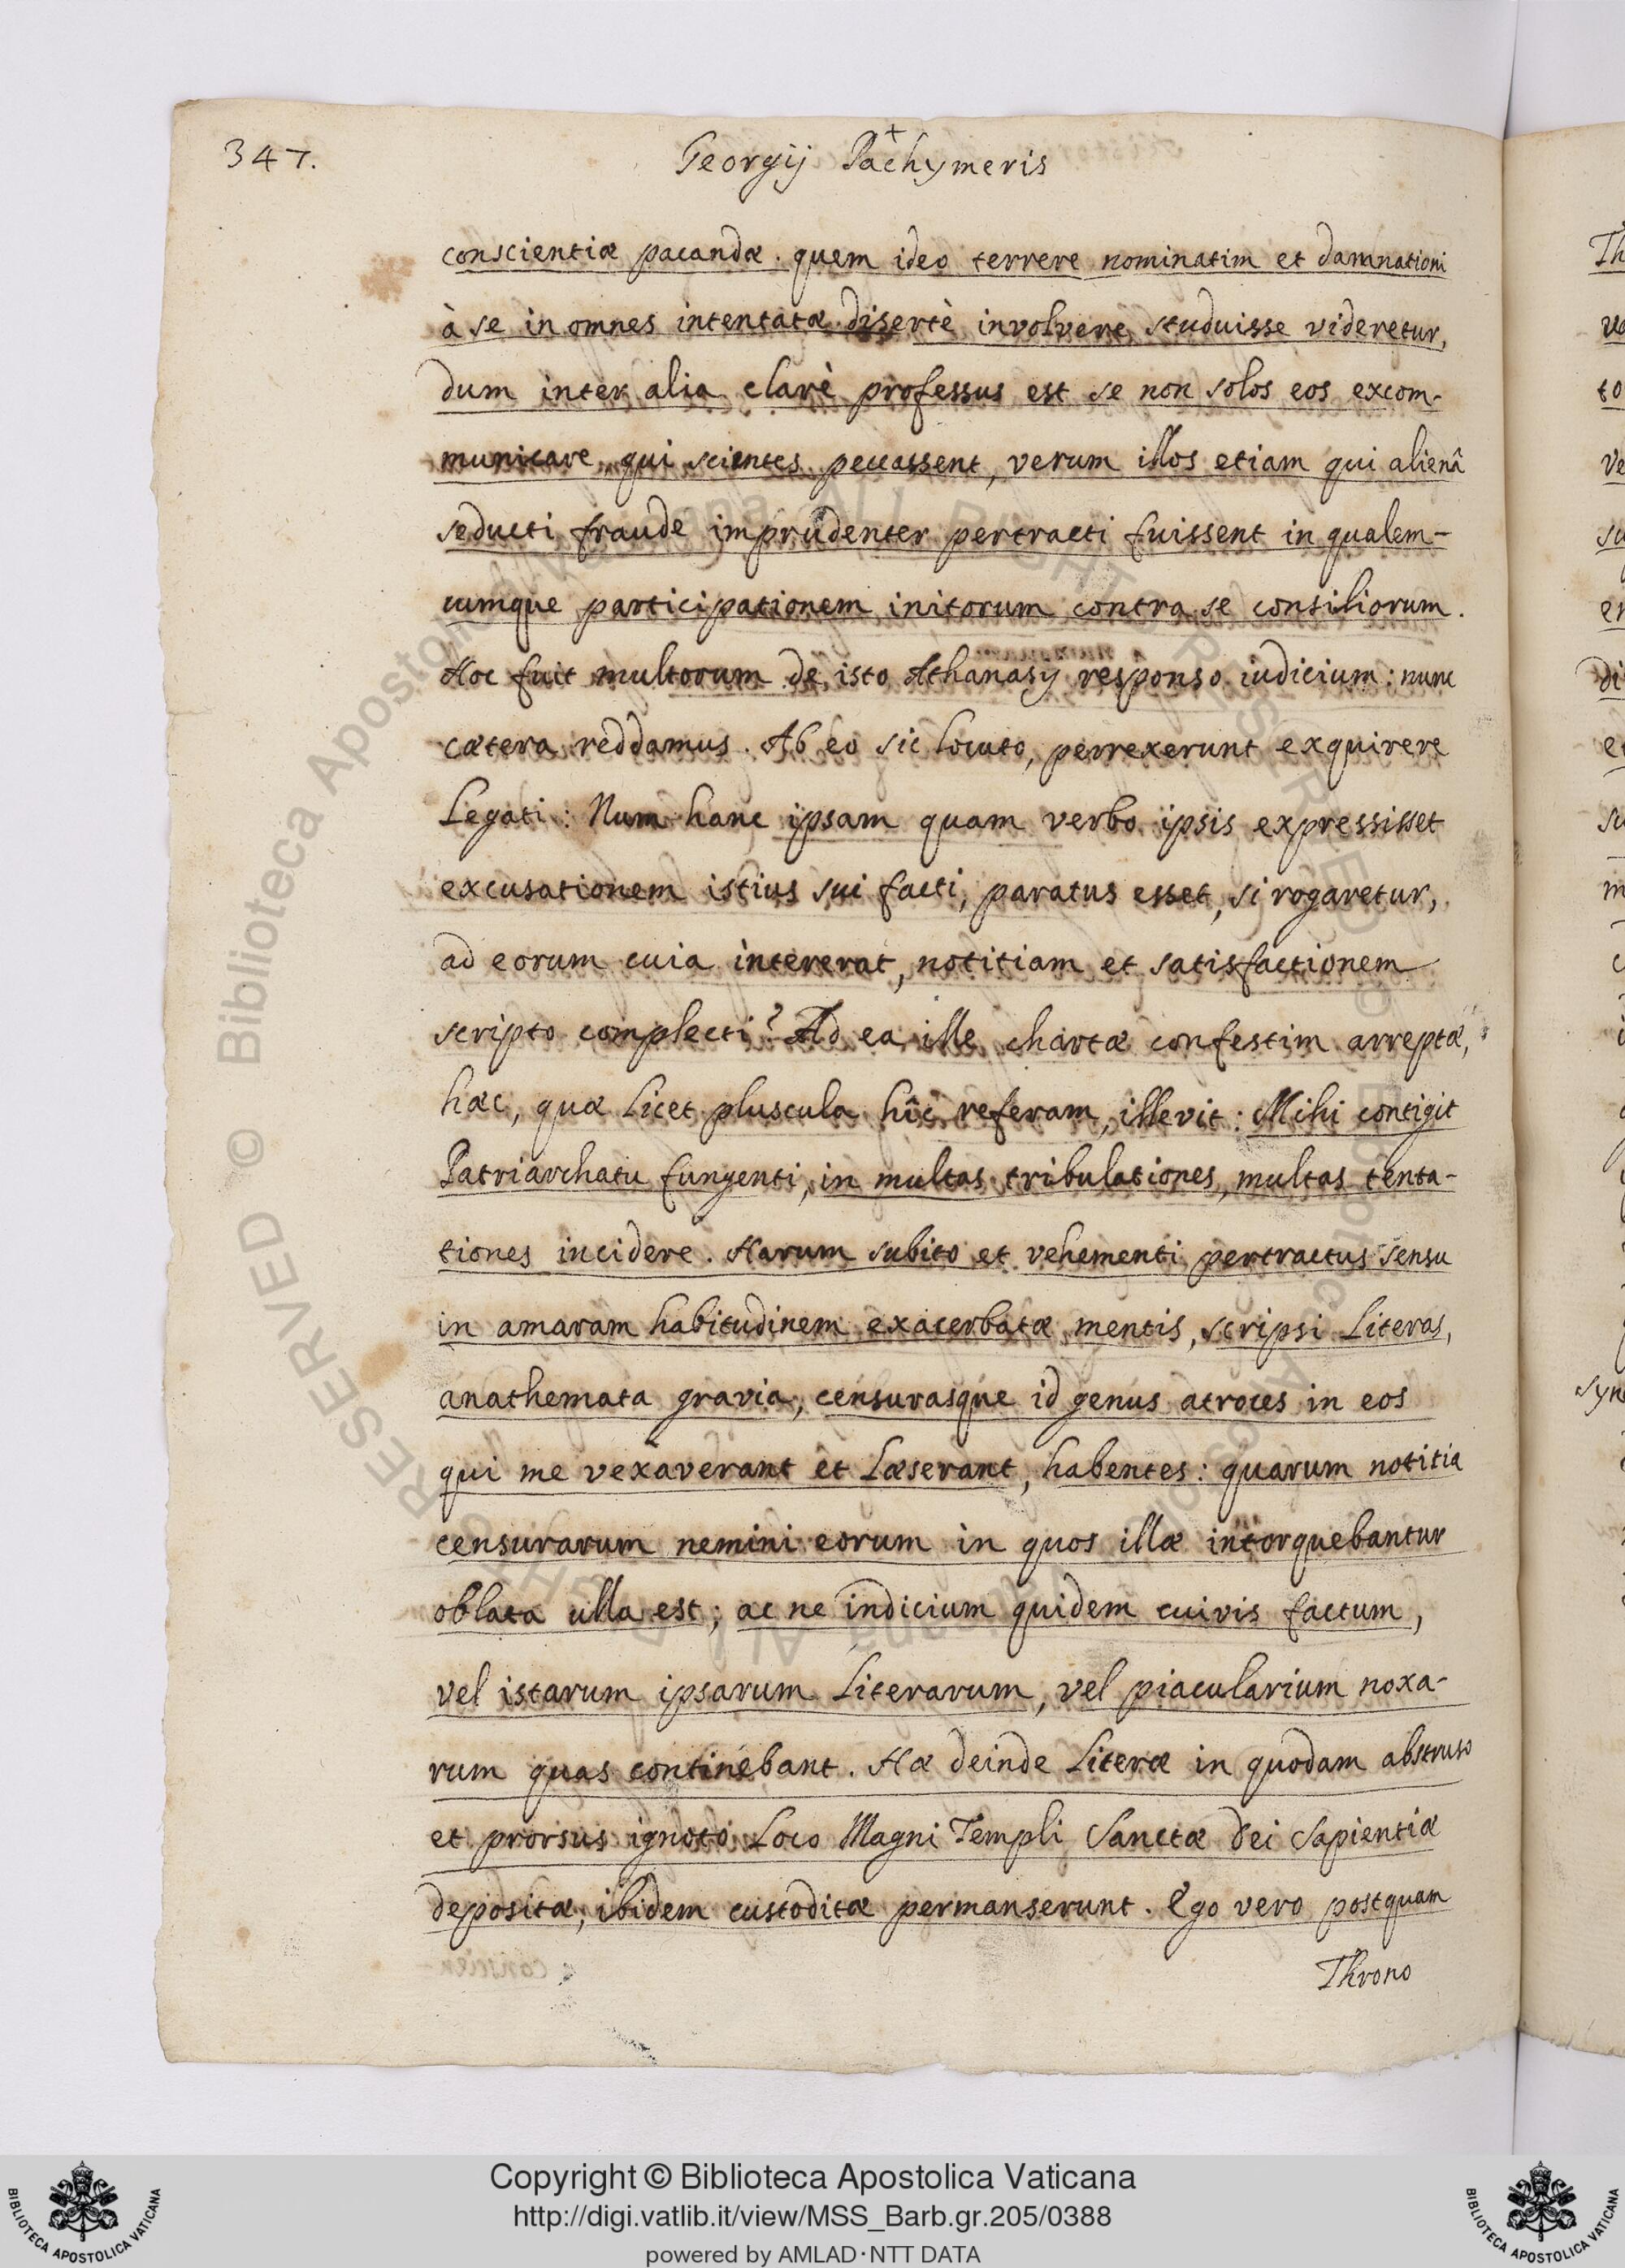 347.
Georgij Pachymeris
conscientiæ pacandæ. quem ideo terrere nominatim et damnationi
à se in omnes intentatæ disertè involvere studuisse videretur,
dum inter alia clarè professus est se non solos eos excom-
municare, qui scientes peccassent, verum illos etiam qui alienâ
seducti fraude imprudenter pertracti fuissent in qualem-
cumque participationem initorum contra se consiliorum.
Hoc fuit multorum de isto Athanasij responso iudicium: nunc
cætera reddamus. Ab eo sic locuto, perrexerunt exquirere
Legati: Num hanc ipsam quam verbo ipsis expressisset
excusationem istius sui facti, paratus esset, si rogaretur,
ad eorum cuia intererat, notitiam et satisfactionem
scripto complecti? Ad ea ille chartæ confestim arreptæ,
hæc, quæ licet pluscula hîc referam, illevit: Mihi contigit
Patriarchatu fungenti, in multas tribulationes, multas tenta-
tiones incidere. Harum subito et vehementi pertractus sensu
in amaram habitudinem exacerbatæ mentis, scripsi Literas,
anathemata gravia, censurasque id genus atroces in eos
qui me vexaverant et Læserant, habentes: quarum notitia
censurarum nemini eorum in quos illæ intorquebantur
oblata ulla est; ac ne indicium quidem cuivis factum,
vel istarum ipsarum Literarum, vel piacularium noxa-
rum quas continebant. Hæ deinde Literæ in quodam abstruso
et prorsus ignoto Loco Magni Templi Sanctæ Dei Sapientiæ
depositæ, ibidem custoditæ permanserunt. Ego vero postquam
Throno
Copyright © Biblioteca Apostolica Vaticana
http://digi.vatlib.it/view/MSS_Barb.gr.205/0388
powered by AMLAD·NTT DATA
BIBLIOTECA APOSTOLICA VATICANA
BIBLIOTECA APOSTOLICA VATICANA